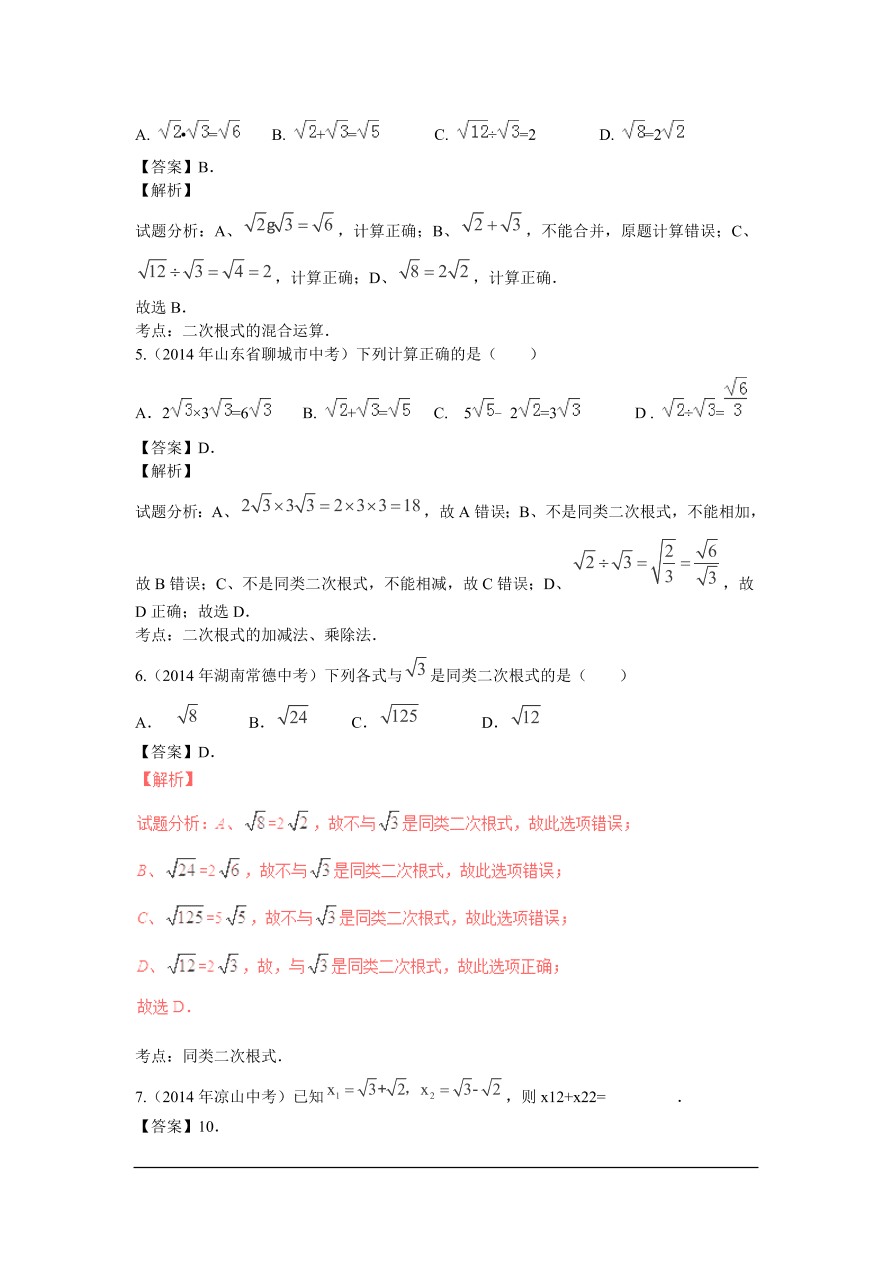 A. √2•√3=√6 B. √2+√3=√5 C. √12÷√3=2 D. √8=2√2
【答案】B．
【解析】
试题分析：A、√2g√3=√6，计算正确；B、√2+√3，不能合并，原题计算错误；C、
√12÷√3=√4=2，计算正确；D、√8=2√2，计算正确．
故选 B．
考点：二次根式的混合运算．
5.（2014 年山东省聊城市中考）下列计算正确的是（ ）
A．2√3×3√3=6√3 B. √2+√3=√5 C. 5√5﹣2√2=3√3 D . √2÷√3=√6/3
【答案】D．
【解析】
试题分析：A、2√3×3√3=2×3×3=18，故 A 错误；B、不是同类二次根式，不能相加，
故 B 错误；C、不是同类二次根式，不能相减，故 C 错误；D、√2÷√3=√(2/3)=√6/√3，故
D 正确；故选 D．
考点：二次根式的加减法、乘除法．
6.（2014 年湖南常德中考）下列各式与√3是同类二次根式的是（ ）
A． √8 B．√24 C．√125 D．√12
【答案】D．
【解析】
试题分析：A、√8=2√2，故不与√3是同类二次根式，故此选项错误；
B、√24=2√6，故不与√3是同类二次根式，故此选项错误；
C、√125=5√5，故不与√3是同类二次根式，故此选项错误；
D、√12=2√3，故，与√3是同类二次根式，故此选项正确；
故选 D．
考点：同类二次根式．
7.（2014 年凉山中考）已知x₁=√3+√2，x₂=√3-√2，则 x12+x22= ．
【答案】10．